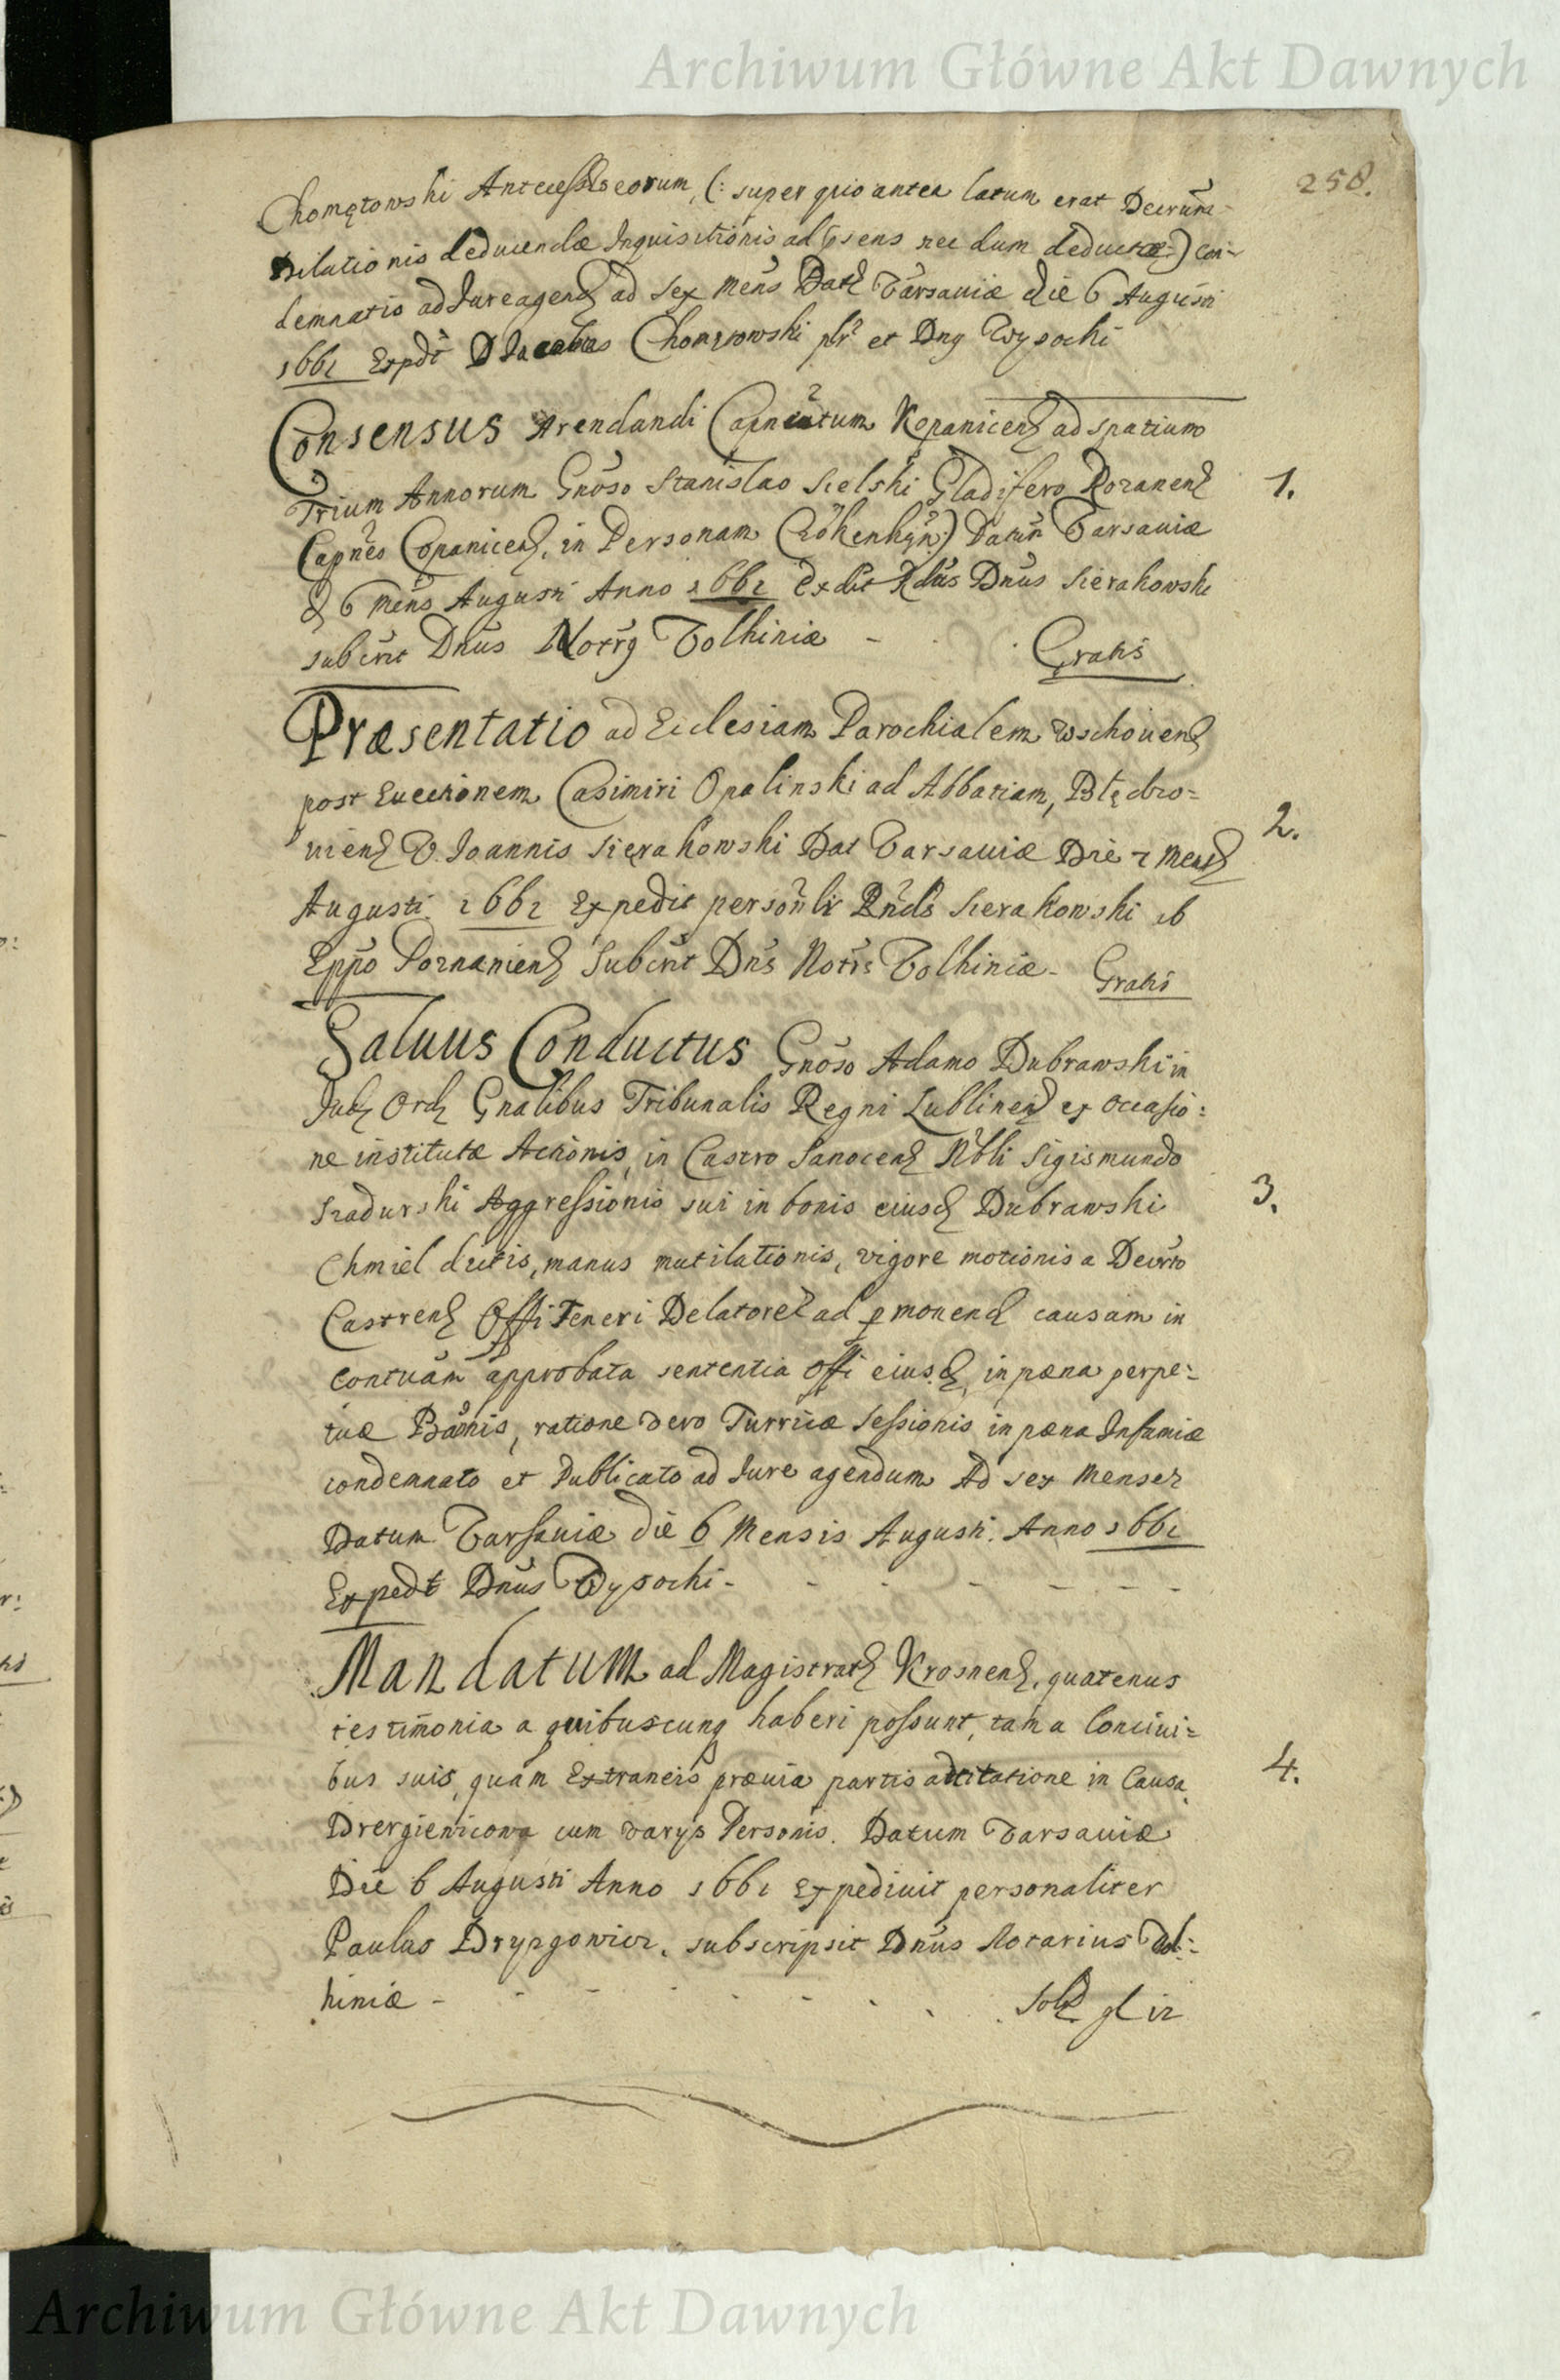 Archiwum Główne Akt Dawnych
258.
Chomętowski Antecessorum, (: super quio antea latum erat Decrūm
Dilationis deducendæ Inquisitionis ad psens nec dum deductæ:) con-
demnatio ad Jure agend ad sex mens Dat Varsaviæ die 6 Augusti
1661 Expdt D Jacobus Chomętowski plr et Dnꝰ Wysocki
Consensus Arendandi Capneatum Kopanicen ad spatium
Trium Annorum Gnoso Stanislao Sielski Gladifero Poznanen
Capneo Copanicen, in Personam Datum Varsaviæ
d 6 mens Augusti Anno 1661 Exdit Rdus Dnus Sierakowski
subcrit Dnus Notrꝰ Volhiniæ - Gratis
1.
Præsentatio ad Ecclesiam Parochialem Wschovien
post Evectionem Casimiri Opalinski ad Abbatiam, Blędzo=
vien V. Joannis Sierakowski Dat Varsaviæ Die 7 Mens
Augusti 1661 Expedit personlr Rnds Sierakowski ab
Eppo Poznanien Subcrit Dns Notrs Volhiniæ - Gratis
2.
Salvus Conductus Gnoso Adamo Dubrawski in
Jud Ord Gnalibus Tribunalis Regni Lublinen ex occasio:
ne institutæ Actionis, in Castro Sanocen Nbli Sigismundo
Szadurski Aggressionis sui in bonis eiusd Dubrawski
Chmiel dictis, manus mutilationis, vigore motionis a Decrto
Castren Offi Teneri Delatore ad pmonend causam in
contuām approbata sententia offi eiusd, in pæna perpe:
tuæ Bannis, ratione vero Turriæ Sessionis in pæna Infamiæ
condemnato et Publicato ad Jure agendum Ad sex Menses
Datum Varsaviæ die 6 Mensis Augusti. Anno 1661
Expedt Dnus Wysocki -
3.
Mandatum ad Magistrat Krosnen, quatenus
testimonia a quibuscunq haberi possunt, tam a Concivi=
bus suis, quam Extraneis prævia partis attitatione in Causa
cum varys Personis. Datum Varsaviæ
Die 6 Augusti Anno 1661 Expedivit personaliter
Paulus subscripsit Dnus Notarius Vol:
hiniæ -
4.
Archiwum Główne Akt Dawnych